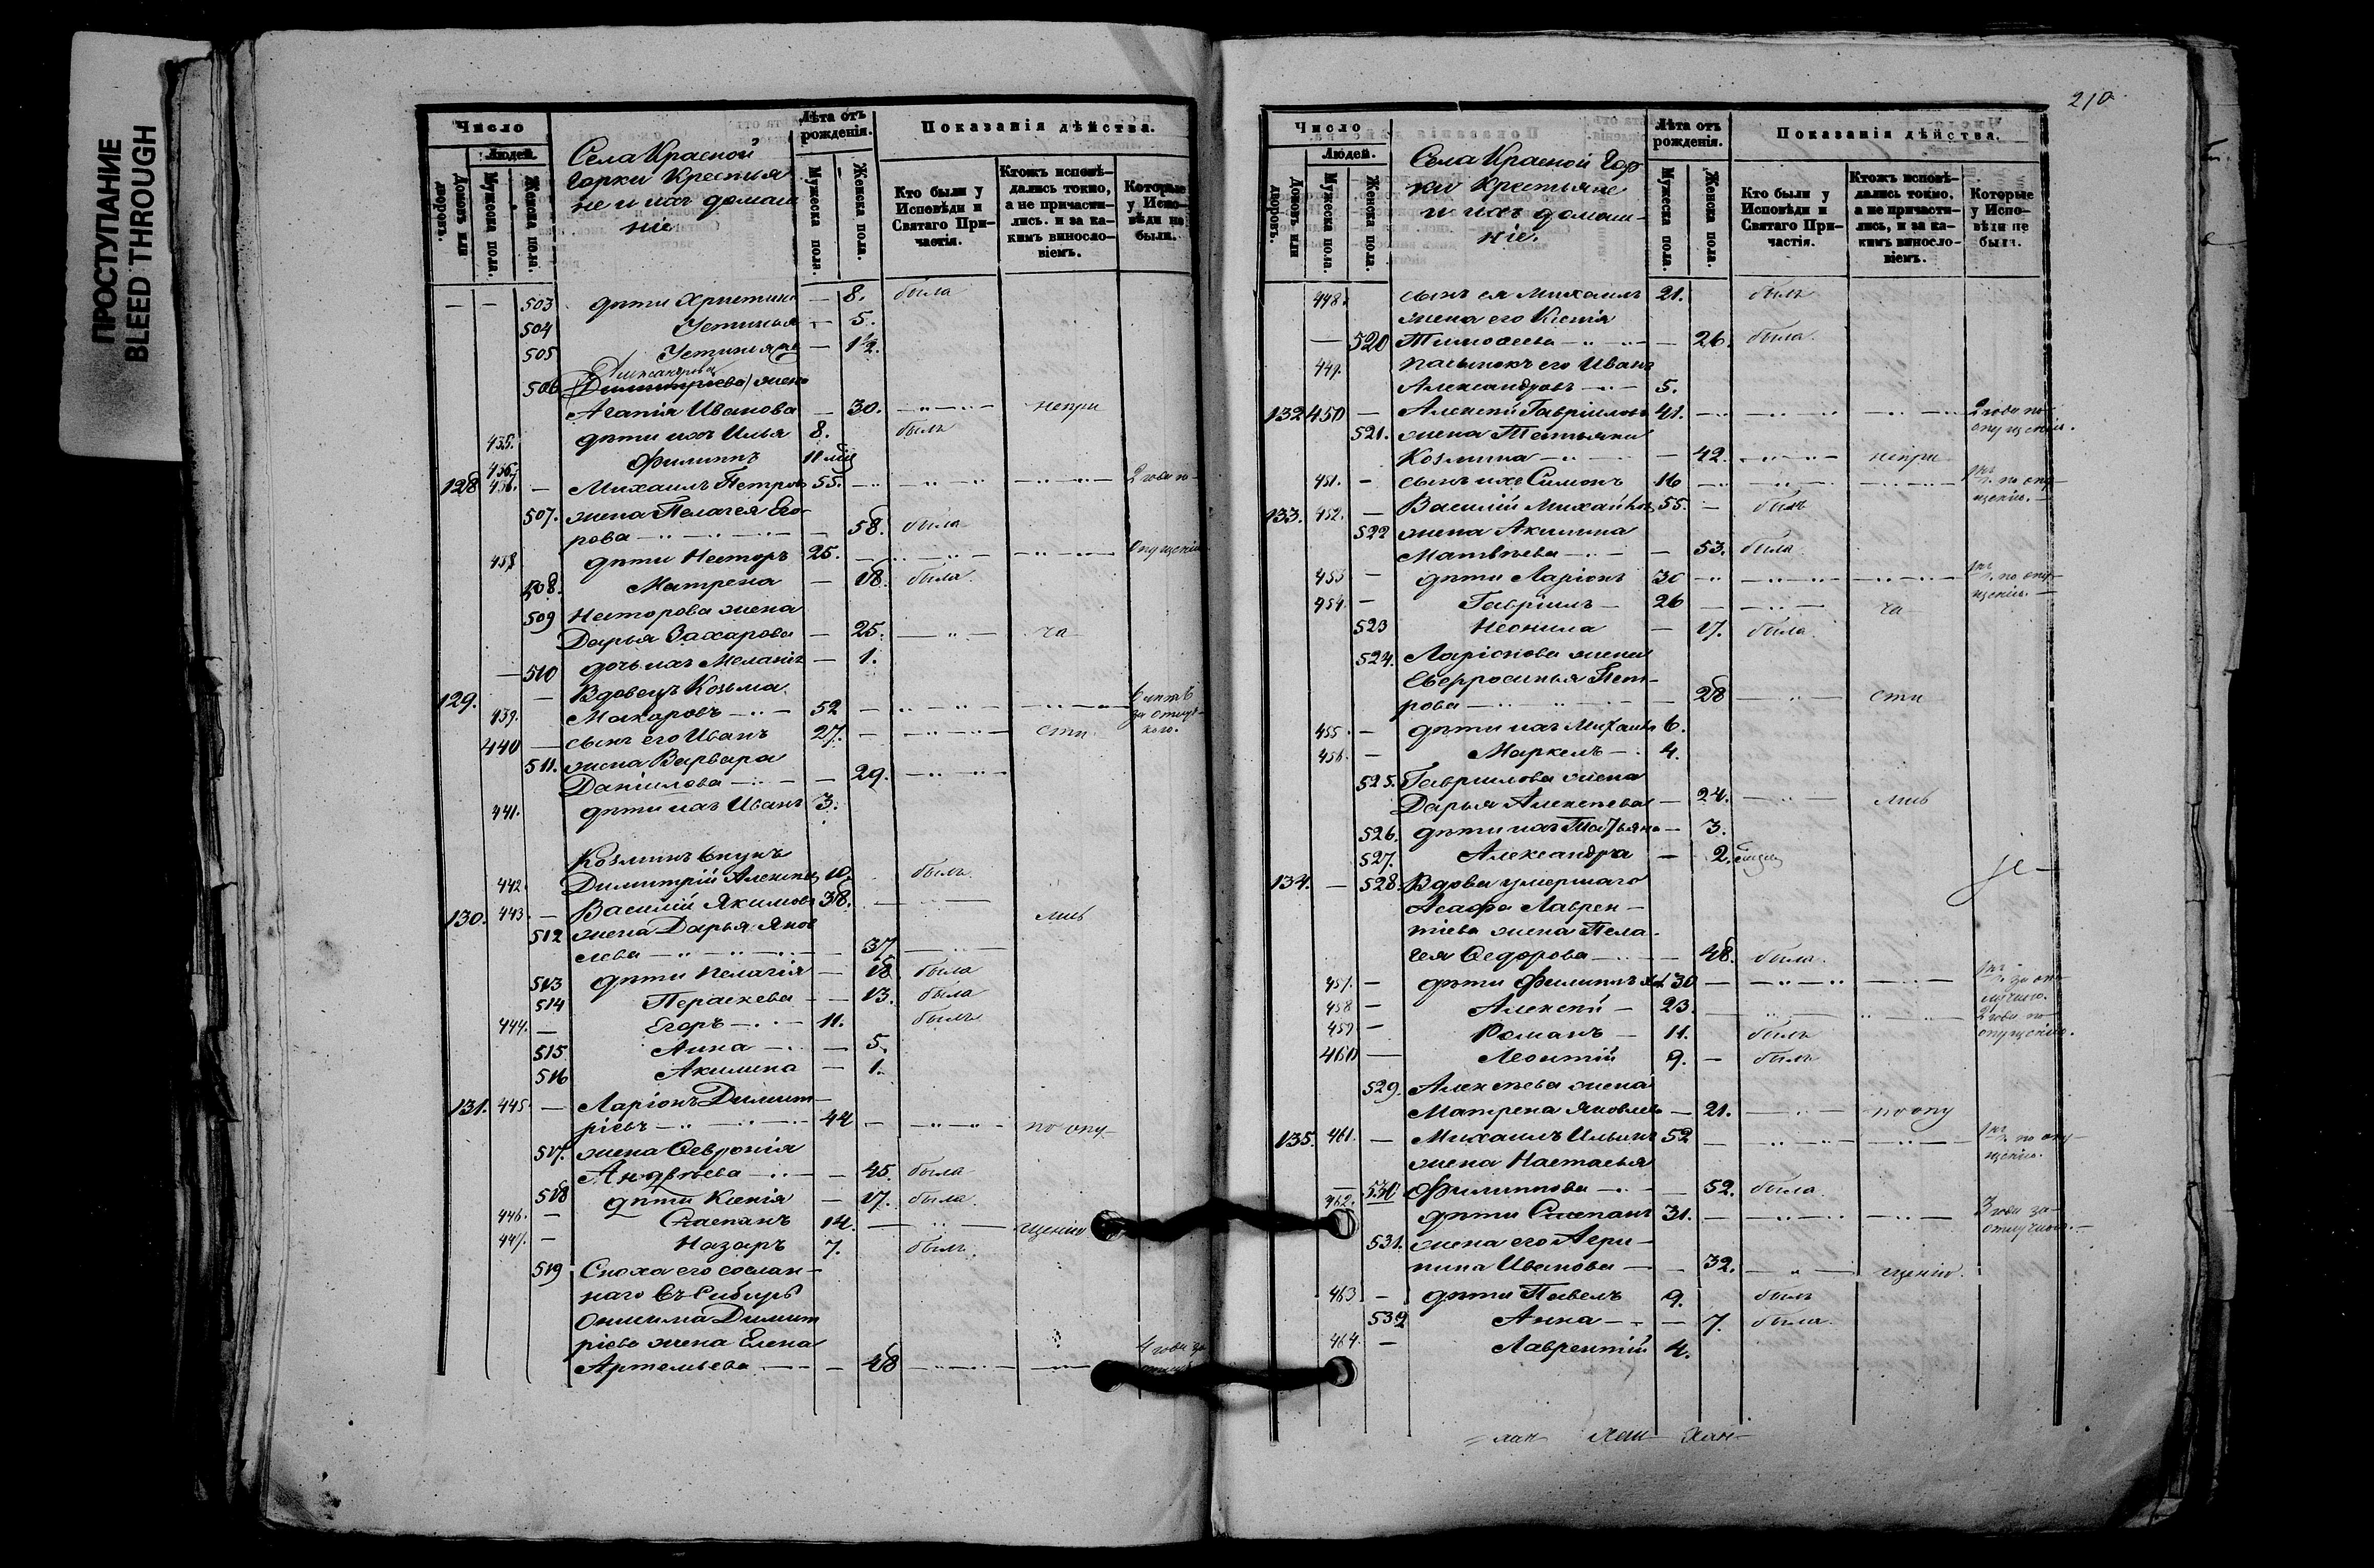 ПРОСТУПАНИЕ
BLEED THROUGH
Число
Людей.
Домовъ или дворовъ.
Мужеска пола.
Женска пола.
Села Красной
Горки Крестья
не и ихъ домаш
ніе
Лѣта отъ рожденія.
Мужеска пола.
Женска пола.
Показанія дѣйства.
Кто были у Исповѣди и Святаго Причастія.
Ктожъ исповѣдались токмо, а не причастились. и за какимъ винословіемъ.
Которые у Исповѣди не были.
— — 503 дѣти Христина — 8. была
504 Устинья — 5.
505 Устинія — 1½.
Александрова
506 Димитріева жена
Агапія Иванова — 30. непри
435. дѣти ихъ Илья 8. былъ
436. Филиппъ 11 мѣс
128 — Михаилъ Петровъ 55. 2 года по
507. жена Пелагея Его-
рова — 58. была
438 дѣти Несторъ 25. опущенію
508. Матрена — 18. была
509 Несторова жена
Дарья Захарова — 25. ча
— 510 дочь ихъ Меланія — 1.
129. — Вдовецъ Козьма
439. Макаровъ 52 6 лѣтъ за отлуч-
440 — сынъ его Иванъ 27. сти
511. жена Варвара
Даніилова — 29.
441. дѣти ихъ Иванъ 3.
Козминъ внукъ
442. Димитрій Алексѣевъ 10. былъ
130. 443. — Василій Якимовъ 38.
лись
512 жена Дарья Яков
лева — 37
513 дѣти Пелагія — 18. была
514 Параскева — 13. была
444. — Егоръ 11. былъ
515 Анна — 5.
516 Акилина — 1.
131. 445. — Ларіонъ Димит-
ріевъ 44 — по опу
517. жена Февронія
Андрѣева — 45. была
518 дѣти Ксенія — 17. была
446. — Степанъ 14. щенію
447. — Назаръ 7. былъ.
519 Сноха его сослан-
наго въ Сибирь
Онисима Димит
ріева жена Елена
Артемьева — 48 4 года за
210
Число
Людей.
Домовъ или дворовъ.
Мужеска пола.
Женска пола.
Села Красной Гор
ки Крестьяне
и ихъ домаш-
ніе.
Лѣта отъ рожденія.
Мужеска пола.
Женска пола.
Показанія дѣйства.
Кто были у Исповѣди и Святаго Причастія.
Ктожъ исповѣдались токмо, а не причастились, и за какимъ винословіемъ.
Которые у Исповѣди не были.
448. сынъ ея Михаилъ 21. былъ
жена его Ксенія
— 520 Тимофеева — 26. была.
449. пасынокъ его Иванъ
Александровъ 5.
132 450 — Алексѣй Гавріиловъ 41. 2 года по
опущенію.
521. жена Татьяна
Козмина — 42. непри
451. — сынъ ихъ Симонъ 16 по опу-
щенію.
133. 452. — Василій Михайловъ 55. — былъ
522 жена Акилина
Матвѣева — 53. была
453 — дѣти Ларіонъ 30 по опу-
щенію.
454. — Гавріилъ 26 ча
523 Неонила — 17. была.
524. Ларіонова жена
Евфросинья Пет-
рова — 28 сти
455. — дѣти ихъ Михаилъ 6.
456. — Маркелъ 4.
525. Гавриилова жена
Дарья Алексѣева — 24. лись
526. дѣти ихъ Татьяна — 3.
527. Александра — 2.
134. — 528. Вдова умершаго
Асафа Лаврен-
тіева жена Пела-
гея Федорова — 48. была.
457. — дѣти Филиппъ 30 за от-
лучкою.
458 — Алексѣй 23. 2 года по
459 — Романъ 11. былъ опущенію.
460 — Леонтій 9. — былъ
529. Алексѣева жена
Матрена Яковлева — 21. по опу
135. 461. — Михаилъ Ильинъ 52 по опу-
щенію.
жена Настасья
530 Филиппова — 52. была.
462. дѣти Степанъ 31. 3 года за
отлучкою.
531. жена его Агри-
пина Иванова — 32. щенію.
463 — дѣти Павелъ 9. былъ
532 Анна — 7. была.
464. — Лаврентій 4.